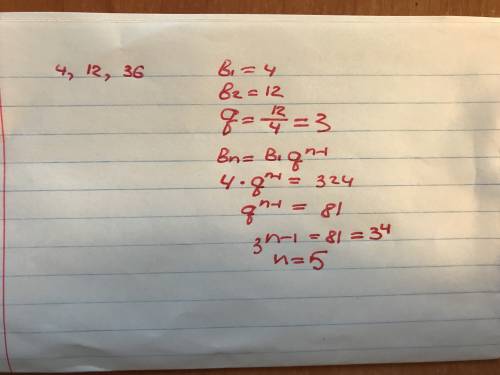 4, 12, 36
b₁ = 4
b₂ = 12
q = 12/4 = 3
bn = b₁ qⁿ⁻¹
4 · qⁿ⁻¹ = 324
qⁿ⁻¹ = 81
3ⁿ⁻¹ = 81 = 3⁴
n = 5